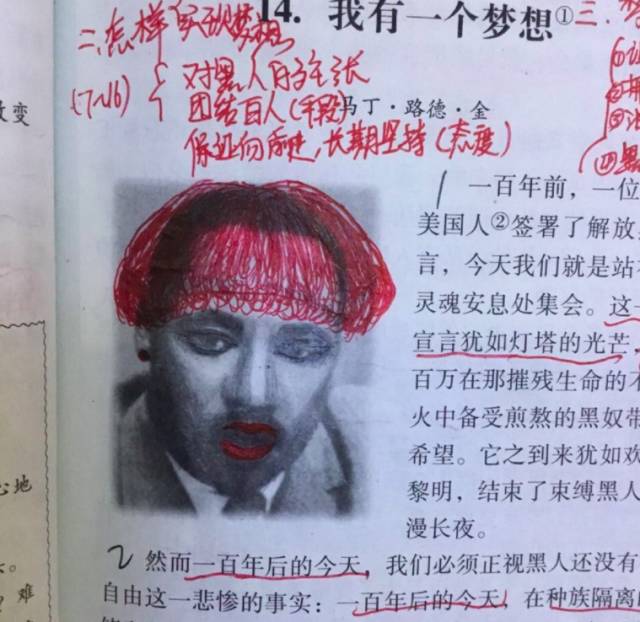 14. 我有一个梦想①
三、
二、怎样实现梦想
(7~16)
对黑人的主张
团结白人(手段)
马丁·路德·金
保证向前走,长期坚持(态度)
改变
1 一百年前,一位
美国人②签署了解放
言,今天我们就是站
灵魂安息处集会。这
宣言犹如灯塔的光芒,
百万在那摧残生命的不
火中备受煎熬的黑奴带
希望。它之到来犹如欢
黎明,结束了束缚黑人
漫长夜。
心地
2 然而一百年后的今天,我们必须正视黑人还没有
难
自由这一悲惨的事实:一百年后的今天,在种族隔离